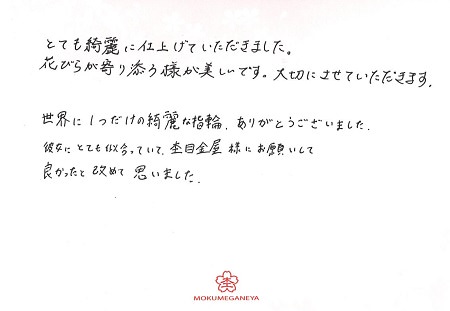 とても綺麗に仕上げていただきました。
花びらが寄り添う様が美しいです。大切にさせていただきます。
世界に1つだけの綺麗な指輪、ありがとうございました。
彼女にとても似合っていて、杢目金屋様にお願いして
良かったと改めて思いました。
MOKUMEGANEYA